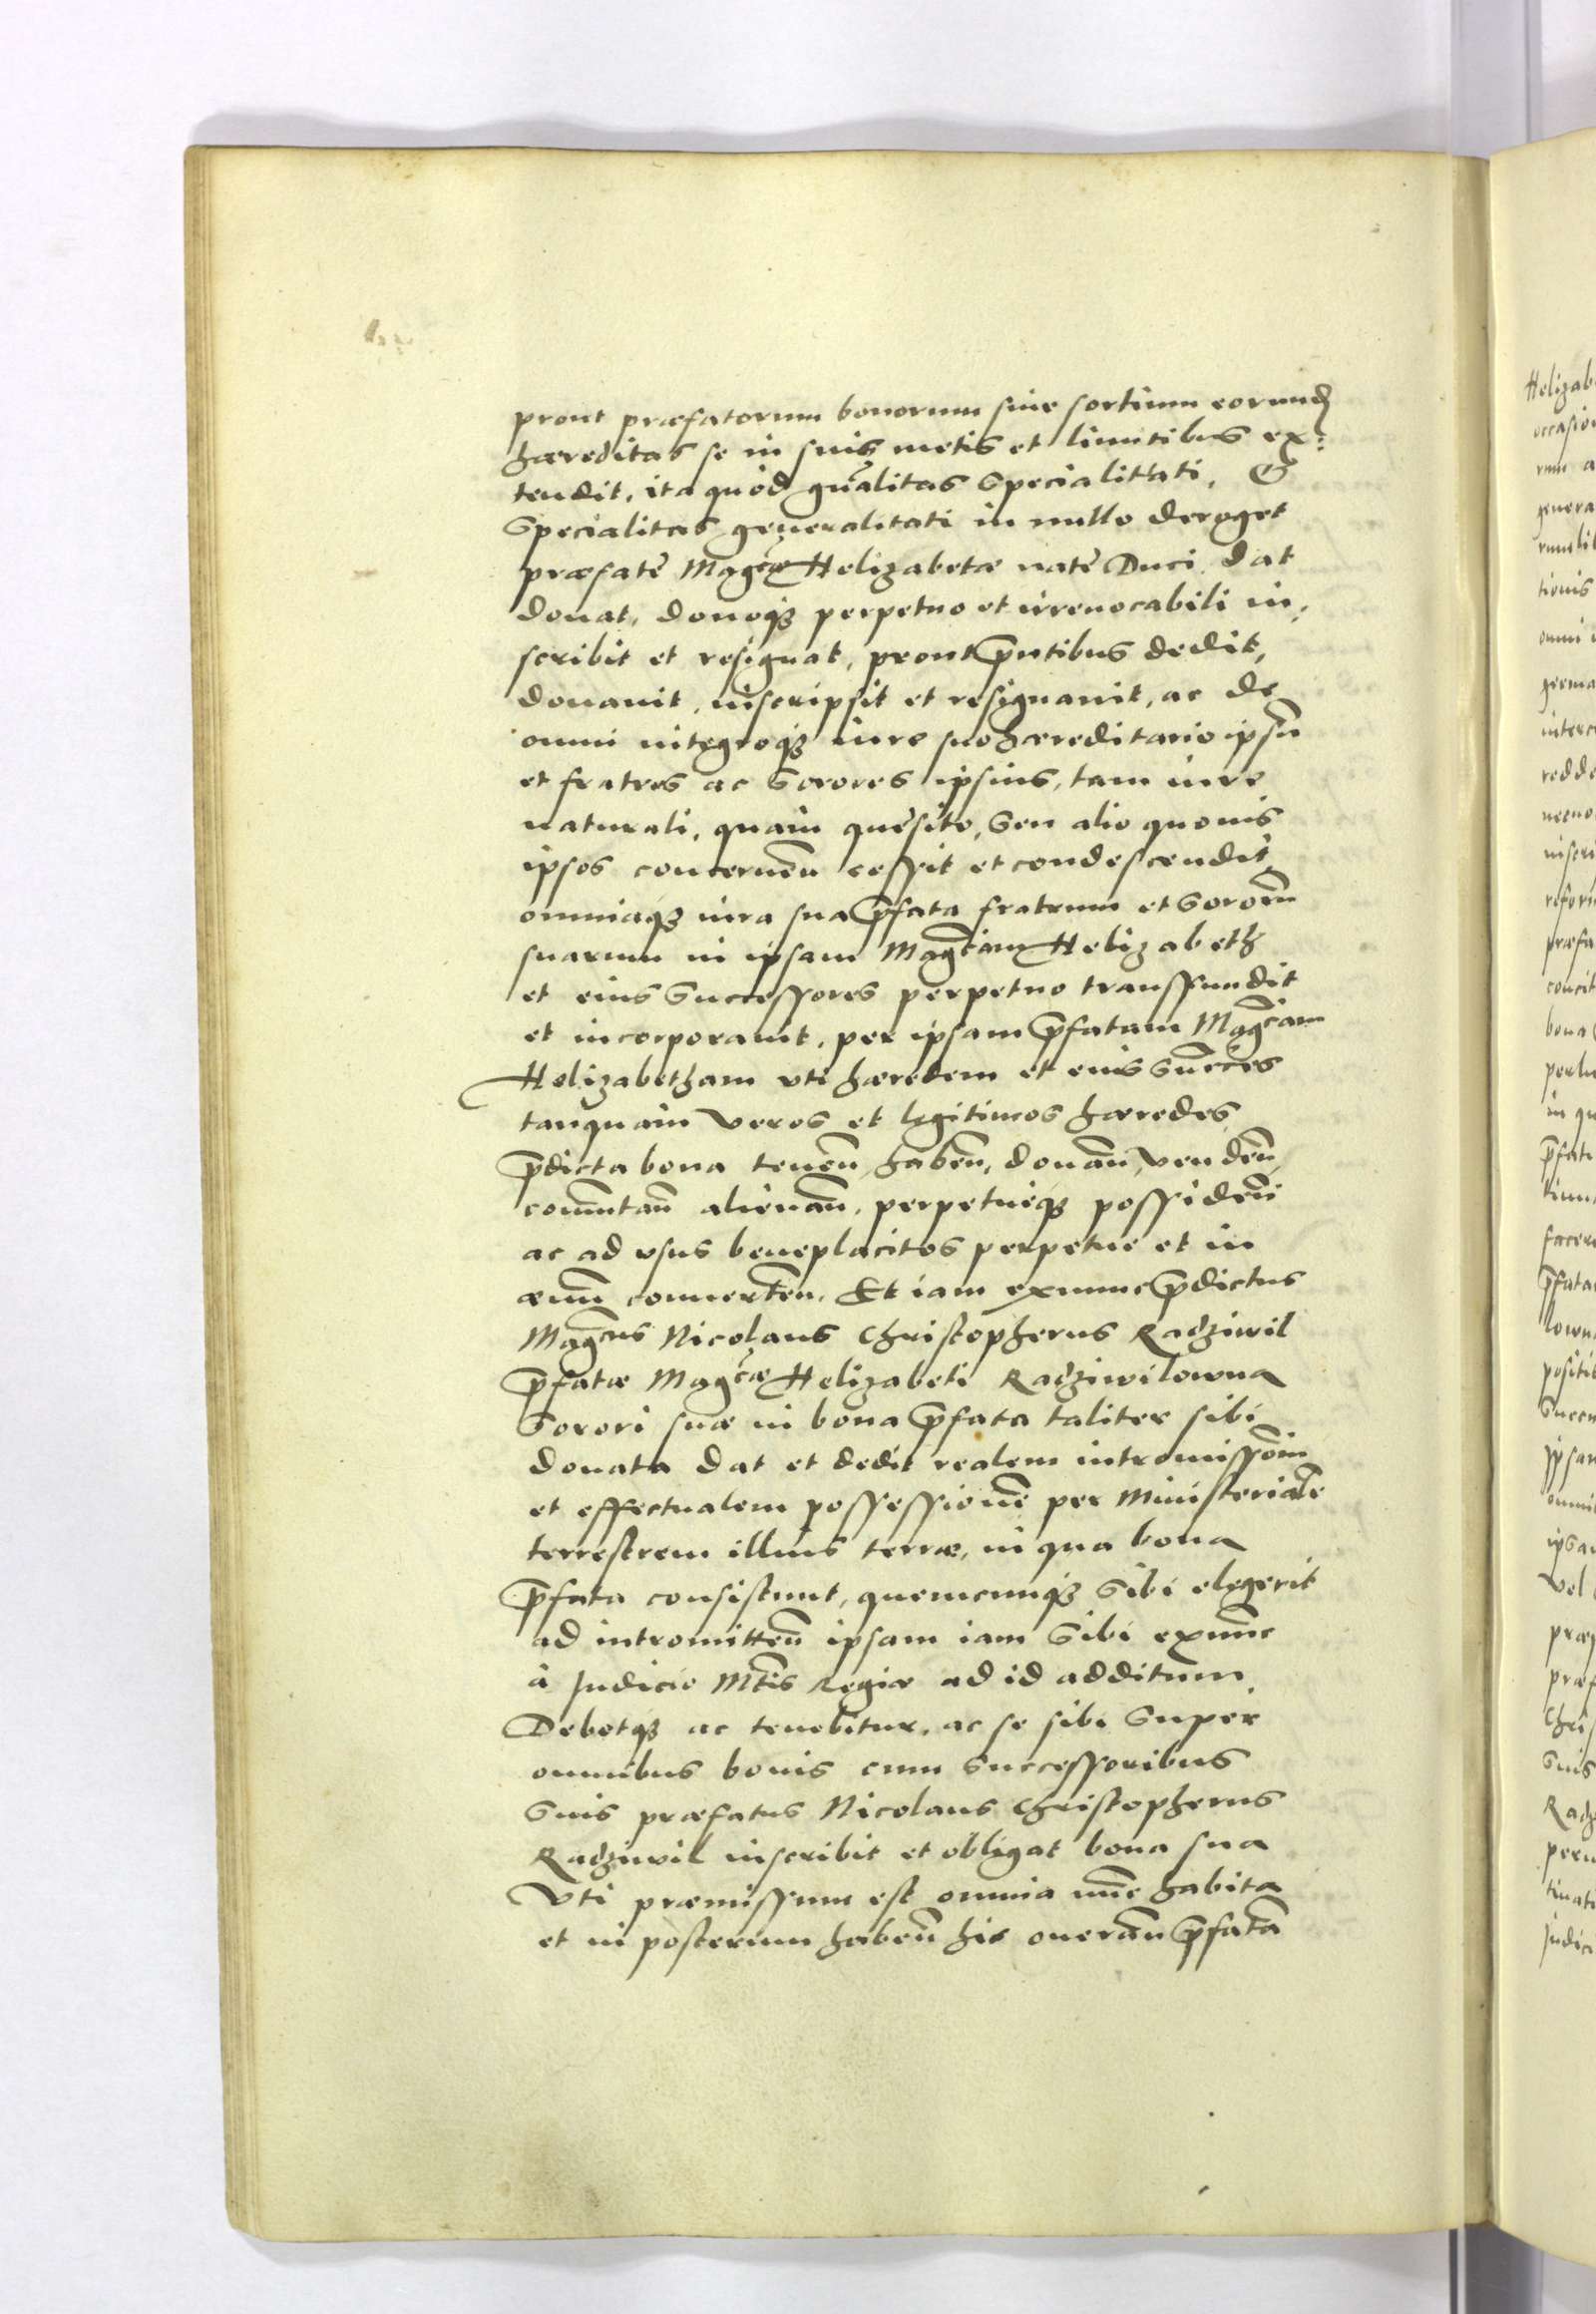 prout præfatorum bonorum siue sortium eorund
hæreditas se in suis metis et limitibus ex:
tendit, ita quòd gnalitas Specialitati, &
Specialitas generalitati in nullo deroget
præfatę Magcæ Helizabetæ natę Duci dat
donat, donoqꝫ perpetuo et irreuocabili in,
scribit et resignat, prout pntibus dedit,
donauit, inscripsit et resignauit, ac de
omni integroqꝫ iure suo hæreditario ipsū
et fratres ac Sorores ipsius, tam iure
naturali, quàm quęsito, Seu alio quouis
ipsos concernēn cessit et condescendit
omniaqꝫ iura sua pfata fratrum et Sororū
suarum in ipsam Magcam Helizabeth
et eius Successores perpetuo transfundit
et incorporauit, per ipsam pfatam Magcam
Helizabetham vti hæredem et eius Succes
tanquàm veros et legitimos hæredes
pdicta bona tenēn, habēn, donān, vendēn,
comutān alienān, perpetueqꝫ possidēn
ac ad vsus beneplacitos perpetue et in
æuū conuertēn. Et iam exnunc pdictus
Magcus Nicolaus Christopherus Radziwil
pfatæ Magcæ Helizabeti Radziwilowna
Sorori suæ in bona pfata taliter sibi
donata dat et dedit realem intromissiōm
et effectualem possessionē per Ministerialē
terrestrem illius terræ, in qua bona
pfata consistunt, quemcunqꝫ Sibi elegerit
ad intromittēn ipsam iam Sibi exnūc
à Judicio Mtis Regiæ ad id additum.
Debetqꝫ ac tenebitur, ac se sibi Super
omnibus bonis cum Successoribus
Suis præfatus Nicolaus Christopherus
Radziwil inscribit et obligat bona sua
Vti præmissum est omnia nūc habita
et in posterum habēn his onerān pfatā